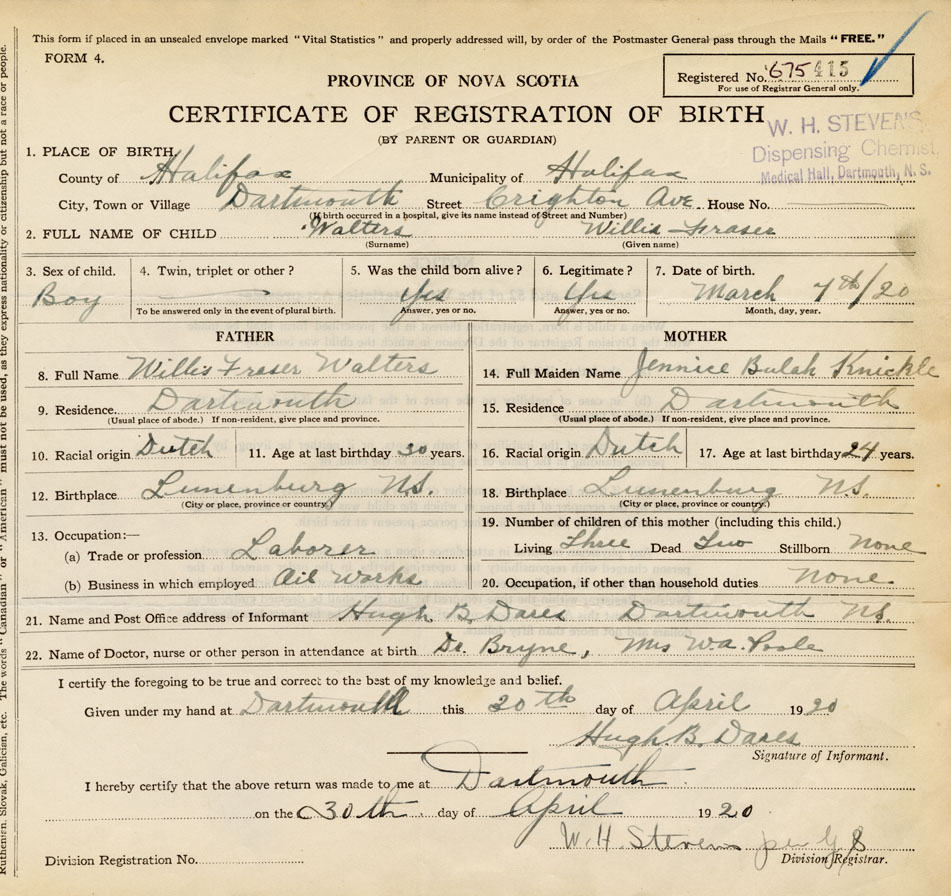 This form if placed in an unsealed envelope marked "Vital Statistics" and properly addressed will, by order of the Postmaster General pass through the Mails "FREE."
FORM 4.
Registered No. 675415
For use of Registrar General only.
PROVINCE OF NOVA SCOTIA
CERTIFICATE OF REGISTRATION OF BIRTH
(BY PARENT OR GUARDIAN)
W. H. STEVENS
Dispensing Chemist,
Medical Hall, Dartmouth, N. S.
1. PLACE OF BIRTH
County of Halifax Municipality of Halifax
City, Town or Village Dartmouth Street Crighton Ave. House No.
(If birth occurred in a hospital, give its name instead of Street and Number)
2. FULL NAME OF CHILD Walters Willis Fraser
(Surname) (Given name)
3. Sex of child. 4. Twin, triplet or other? 5. Was the child born alive? 6. Legitimate? 7. Date of birth.
Boy Yes Yes March 7th/20
To be answered only in the event of plural birth. Answer, yes or no. Answer, yes or no. Month, day, year.
FATHER MOTHER
8. Full Name Willis Fraser Walters 14. Full Maiden Name Jennice Bulah Knickle
9. Residence. Dartmouth 15. Residence Dartmouth
(Usual place of abode.) If non-resident, give place and province. (Usual place of abode.) If non-resident, give place and province.
10. Racial origin Dutch 11. Age at last birthday 30 years. 16. Racial origin Dutch 17. Age at last birthday 24 years.
12. Birthplace Lunenburg N.S. 18. Birthplace Lunenburg N.S.
(City or place, province or country) (City or place, province or country.)
13. Occupation:— 19. Number of children of this mother (including this child.)
(a) Trade or profession Laborer Living Three Dead Two Stillborn None
(b) Business in which employed Oil Works 20. Occupation, if other than household duties None
21. Name and Post Office address of Informant Hugh B. Dares Dartmouth N.S.
22. Name of Doctor, nurse or other person in attendance at birth Dr. Bryne, Mrs W.A. Poole
I certify the foregoing to be true and correct to the best of my knowledge and belief.
Given under my hand at Dartmouth this 30th day of April 1920
Hugh. B. Dares
Signature of Informant.
I hereby certify that the above return was made to me at Dartmouth
on the 30th day of April 1920
W. H. Stevens per
Division Registrar.
Division Registration No.
Ruthenian, Slovak, Galician, etc. The words "Canadian" or "American" must not be used, as they express nationality or citizenship but not a race or people.